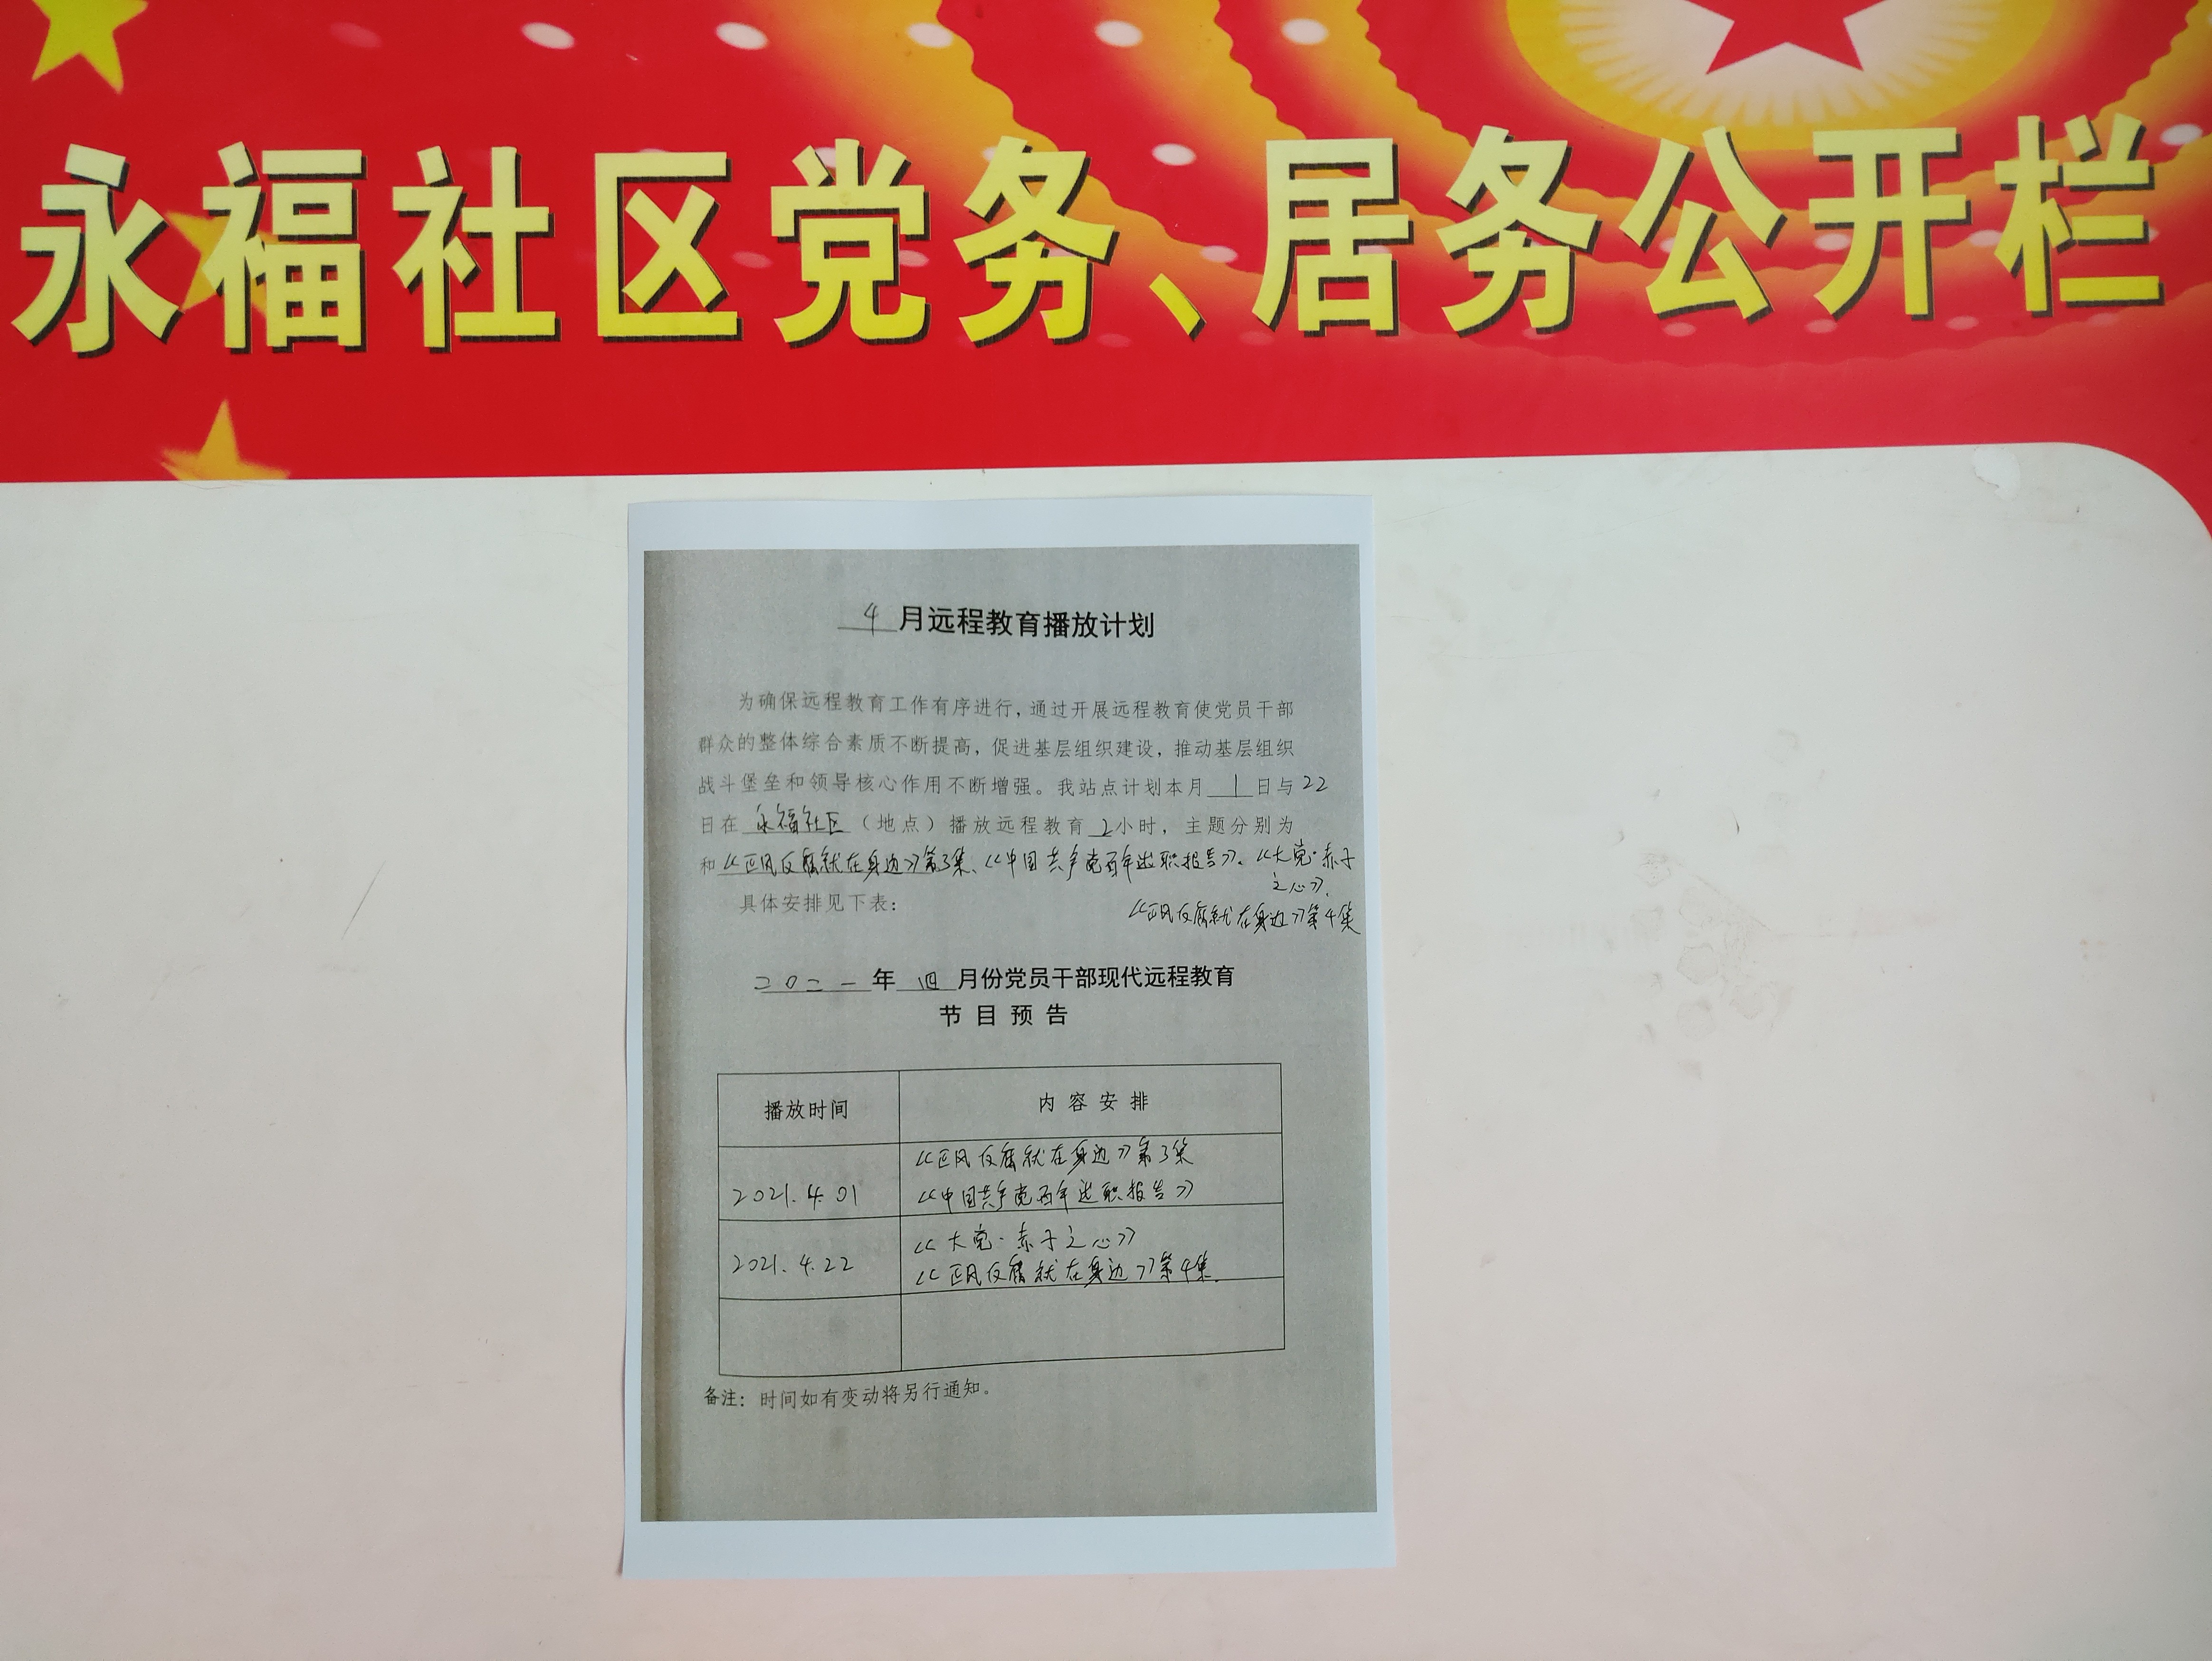 永福社区党务、居务公开栏
4月远程教育播放计划
为确保远程教育工作有序进行，通过开展远程教育使党员干部
群众的整体综合素质不断提高，促进基层组织建设，推动基层组织
战斗堡垒和领导核心作用不断增强。我站点计划本月1日与22
日在永福社区（地点）播放远程教育2小时，主题分别为
和《正风反腐就在身边》第3集、《中国共产党百年述职报告》、《大党·赤子
之心》、
具体安排见下表：
《正风反腐就在身边》第4集
二0二一年四月份党员干部现代远程教育
节目预告
播放时间 内容安排
《正风反腐就在身边》第3集
2021.4.01 《中国共产党百年述职报告》
《大党·赤子之心》
2021.4.22
《正风反腐就在身边》第4集.
备注：时间如有变动将另行通知。